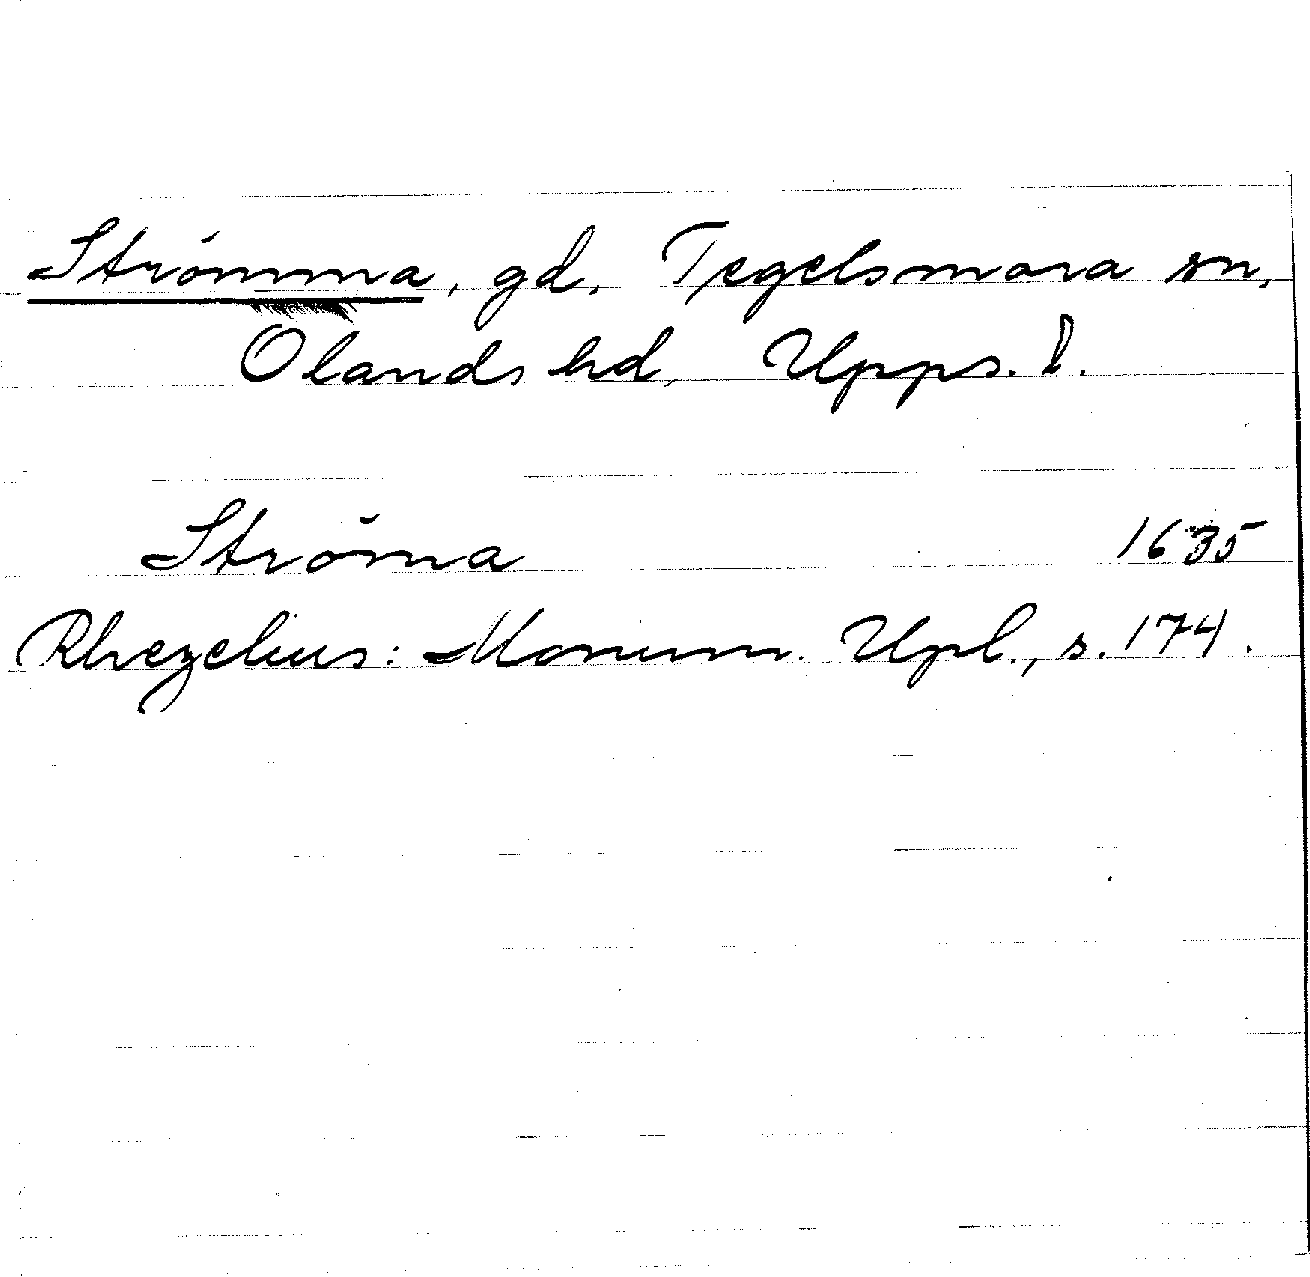 Strömma, gd, Tegelsmora sn,
Olands hd, Upps. l.
Ströma 1635
Rhezelius: Monum. Upl., s. 174.